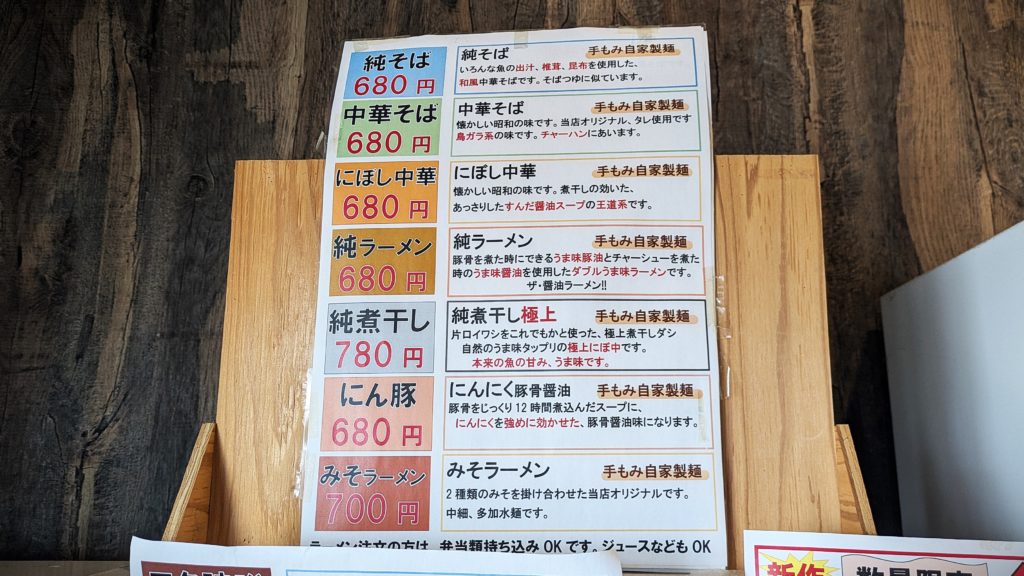 純そば
680 円
純そば 手もみ自家製麺
いろんな魚の出汁、椎茸、昆布を使用した、
和風中華そばです。そばつゆに似ています。
中華そば
680 円
中華そば 手もみ自家製麺
懐かしい昭和の味です。当店オリジナル、タレ使用です
鳥ガラ系の味です。チャーハンにあいます。
にぼし中華
680 円
にぼし中華 手もみ自家製麺
懐かしい昭和の味です。煮干しの効いた、
あっさりしたすんだ醤油スープの王道系です。
純ラーメン
680 円
純ラーメン 手もみ自家製麺
豚骨を煮た時にできるうま味豚油とチャーシューを煮た
時のうま味醤油を使用したダブルうま味ラーメンです。
ザ・醤油ラーメン!!
純煮干し
780 円
純煮干し極上 手もみ自家製麺
片ロイワシをこれでもかと使った、極上煮干しダシ
自然のうま味タップリの極上にぼ中です。
本来の魚の甘み、うま味です。
にん豚
680 円
にんにく豚骨醤油 手もみ自家製麺
豚骨をじっくり12時間煮込んだスープに、
にんにくを強めに効かせた、豚骨醤油味になります。
みそラーメン
700 円
みそラーメン 手もみ自家製麺
2種類のみそを掛け合わせた当店オリジナルです。
中細、多加水麺です。
ラーメン注文の方は、弁当類持ち込みOKです。ジュースなどもOK
新作 数量限定